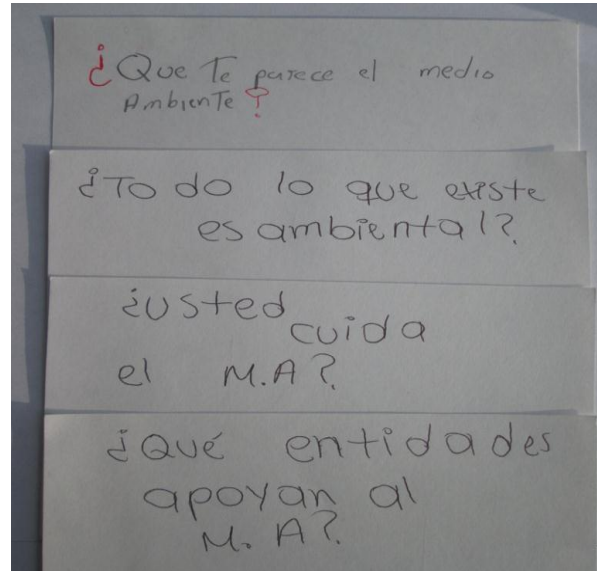 ¿Que Te parece el medio
AmbienTe?
¿To do lo que existe
es ambiental?
¿usted cuida
el M.A?
¿Qué entidades
apoyan al
M.A?